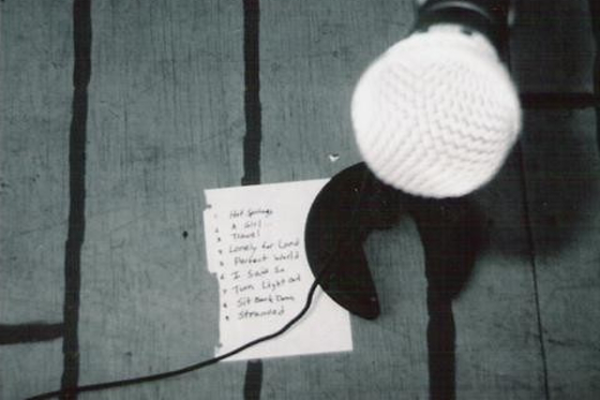 1 Hot Springs
2 A Girl
3 Travel
4 Lonely for Land
5 Perfect World
6 I Said So
7 Turn Light out
8 Sit Back Down
9 Stranded